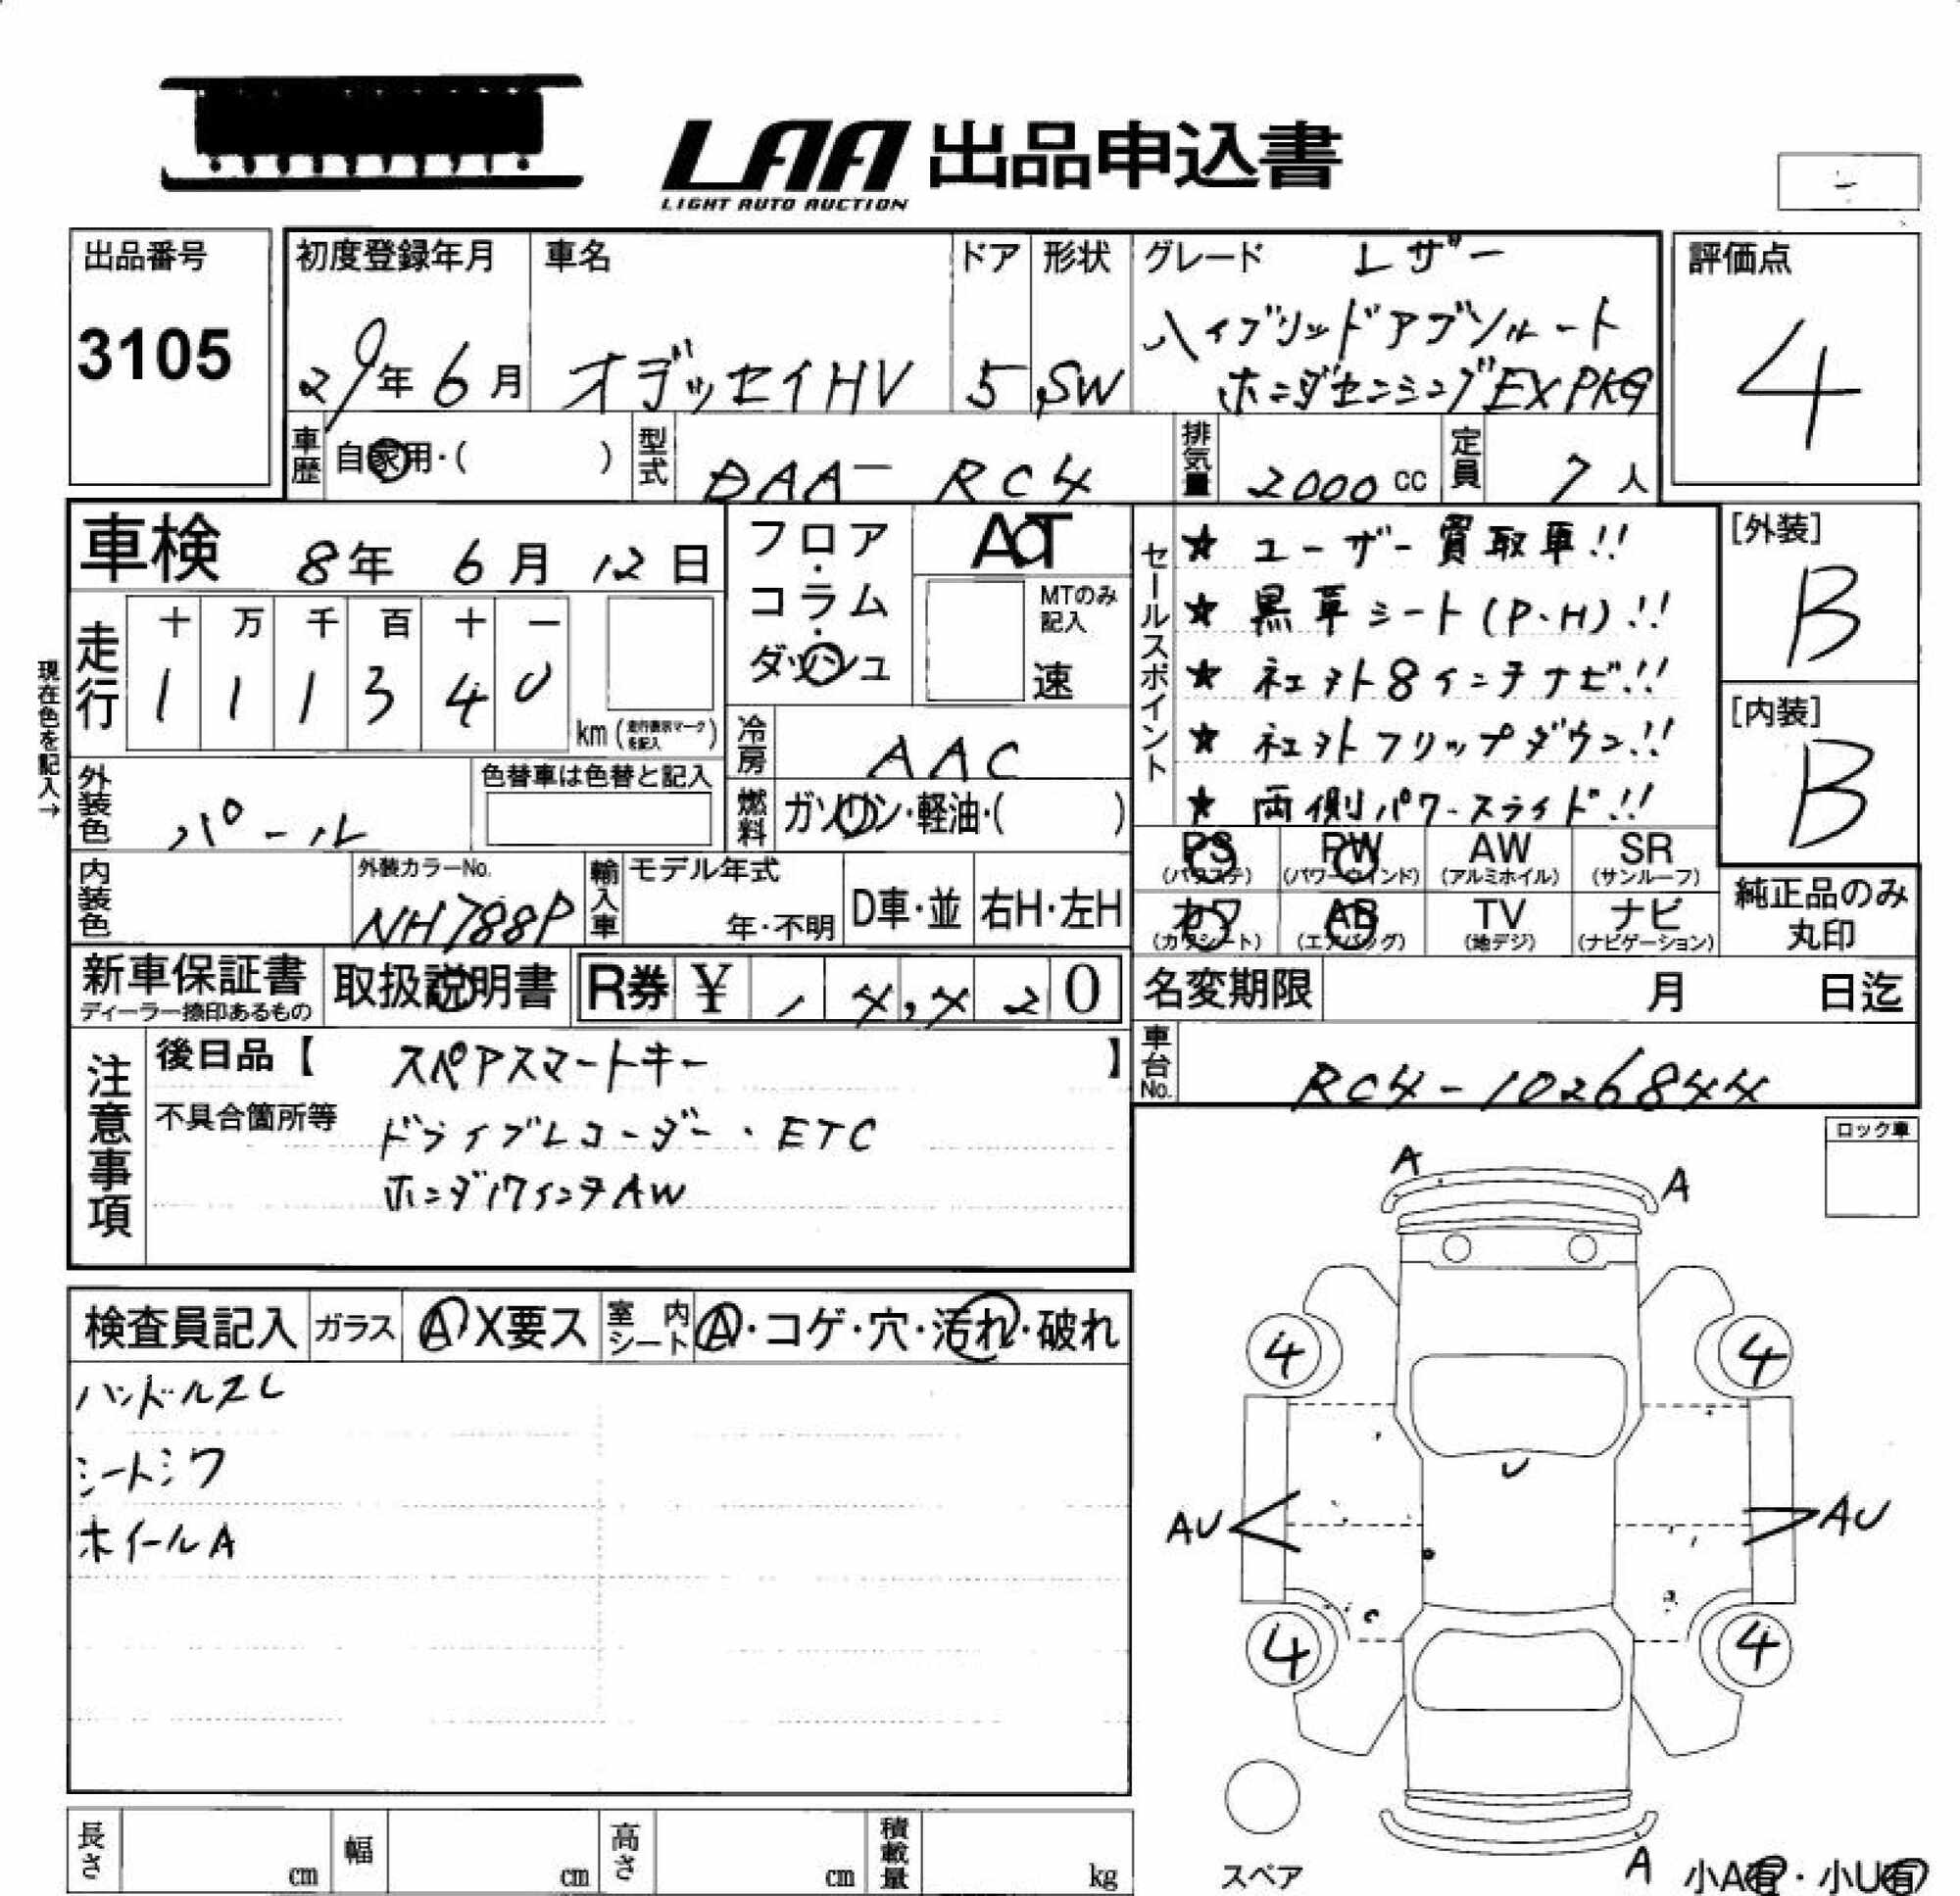 LAA 出品申込書
LIGHT AUTO AUCTION
出品番号
3105
初度登録年月
29年 6月
車名
オデッセイHV
ドア
5
形状
SW
グレード レザー
ハイブリッドアブソルート
ホンダセンシングEXPKG
評価点
4
車歴
自家用・( )
型式
DAA- RC4
排気量
2000 cc
定員
7 人
車検 8年 6月 12日
フロア・コラム・ダッシュ
AT
MTのみ記入
速
セールスポイント
★ ユーザー買取車!!
★ 黒革シート(P・H)!!
★ 社外8インチナビ!!
★ 社外フリップダウン!!
★ 両側パワースライド!!
[外装]
B
[内装]
B
現在色を記入→
走行
十 万 千 百 十 一
1 1 1 3 4 0
km (走行表示マークを記入)
冷房
AAC
外装色
パール
色替車は色替と記入
燃料
ガソリン・軽油・( )
内装色
外装カラーNo.
NH788P
輸入車
モデル年式
年・不明
D車・並
右H・左H
PS
(パワステ)
PW
(パワーウインド)
AW
(アルミホイル)
SR
(サンルーフ)
カワ
(カワシート)
AB
(エアバッグ)
TV
(地デジ)
ナビ
(ナビゲーション)
純正品のみ
丸印
新車保証書
ディーラー捺印あるもの
取扱説明書
R券 ¥ 14,420
名変期限 月 日迄
車台No.
RC4-1026844
注意事項
後日品【 スペアスマートキー 】
不具合箇所等 ドライブレコーダー・ETC
ホンダ17インチAW
ロック車
検査員記入
ガラス A X要ス
室内シート A・コゲ・穴・汚れ・破れ
ハンドルスレ
シートシワ
ホイールA
A
A
4
4
U
AU
AU
4
4
スペア
A
小A有・小U有
長さ cm
幅 cm
高さ cm
積載量 kg